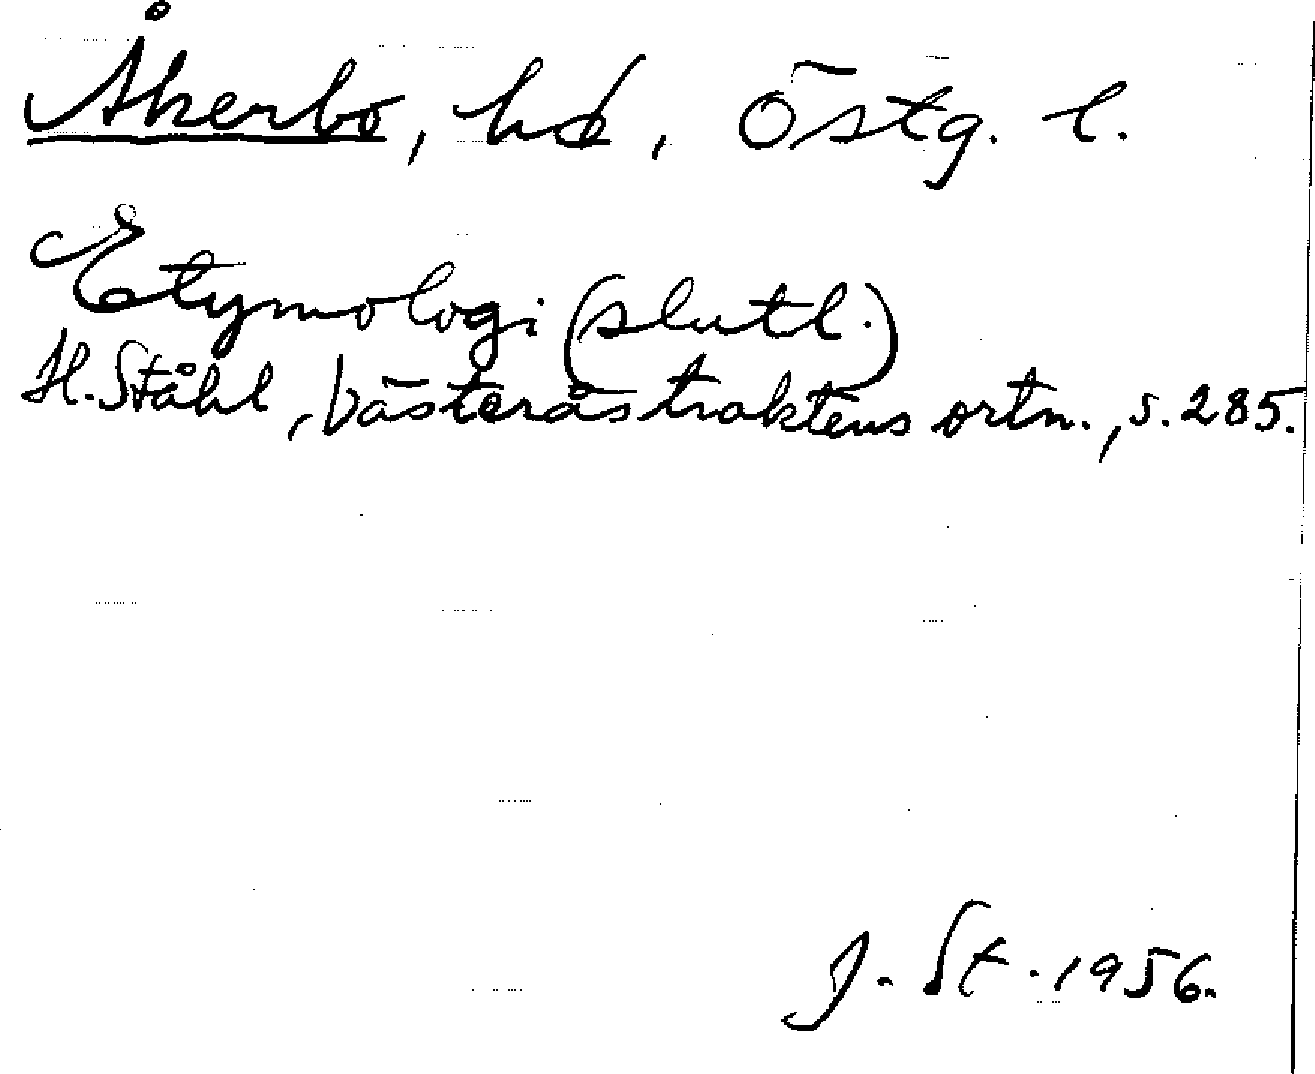 Åkerbo, hd, Östg. l.
Etymologi (slutl.)
H. Ståhl, Västeråstraktens ortn., s. 285.
J. St. 1956.